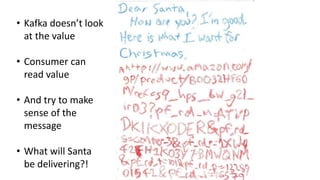 • Kafka doesn't look
at the value
• Consumer can
read value
• And try to make
sense of the
message
• What will Santa
be delivering?!
Dear Santa,
How are you? I'm good.
Here is what I want for
Christmas.
http://www.amazon.com/
gp/product/B0032HF60
M/ref=s9_hps_bw_g21_
ir03?pf_rd_m=ATVP
DKIKX0DER&pf_rd_